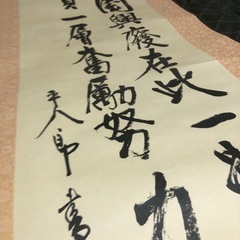 國興廢在此一
員一層奮勵努力
平八郎書